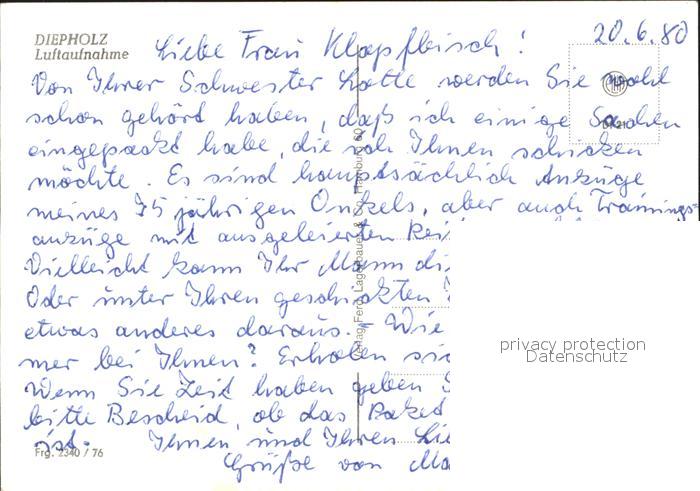 20.6.80
DIEPHOLZ
Luftaufnahme
Liebe Frau Klapfleisch!
Von Ihrer Schwester Lotte werden Sie wohl
schon gehört haben, daß ich einige Sachen
eingepackt habe, die ich Ihnen schicken
möchte. Es sind hauptsächlich Anzüge
meines 75 jährigen Onkels, aber auch Trainings=
anzüge mit ausgeleierten Rei
Vielleicht kann Ihr Mann di
Oder unter Ihren geschickten
etwas anderes daraus. - Wie
mer bei Ihnen? Erholen sie
Wenn Sie Zeit haben geben S
bitte Bescheid, ob das Paket
ist. Ihnen und Ihren Lie
Grüße von Ma
Frg. 2340 / 76
Verlag Ferd. Lagerbauer & Co., Hamburg 60
privacy protection
Datenschutz